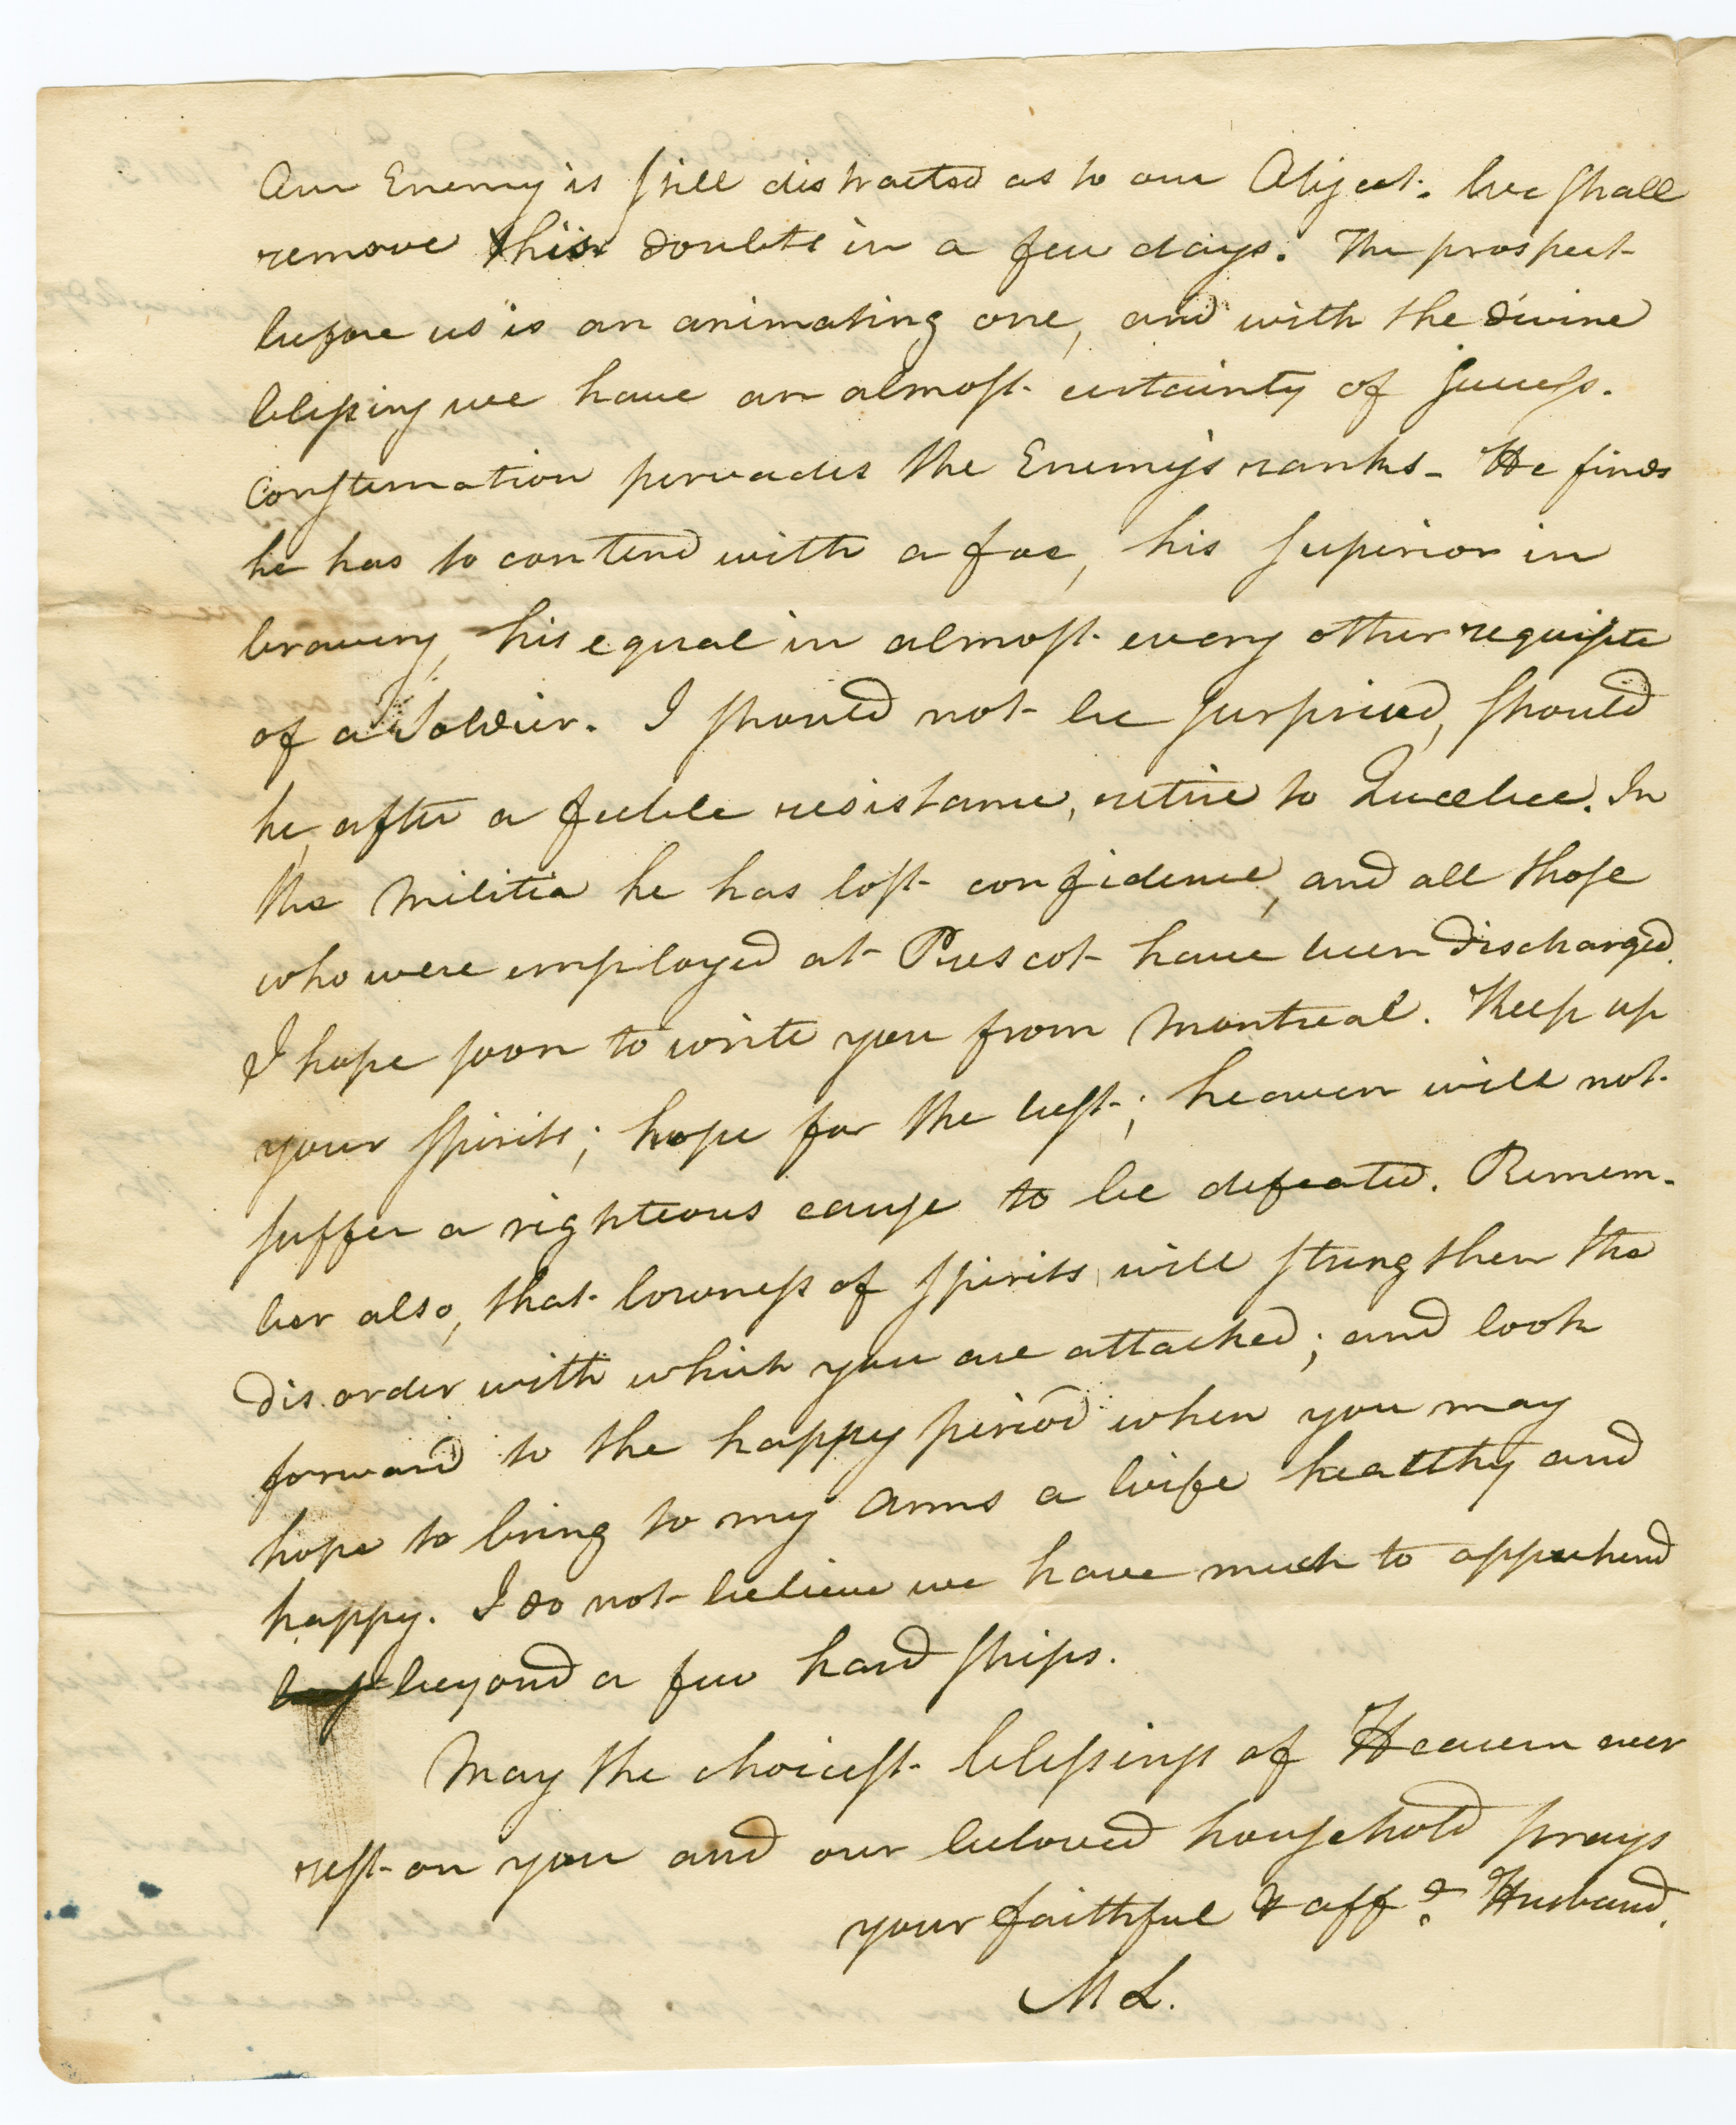 Our Enemy is still distracted as to our Object. We shall
remove his doubts in a few days. The prospect
before us is an animating one, and with the divine
blessing we have an almost certainty of success.
Consternation pervades the Enemy's ranks - He finds
he has to contend with a foe, his superior in
bravery, his equal in almost every other requisite
of a Soldier. I should not be surprised, should
he, after a feeble resistance, retire to Quebec. In
the Militia he has lost confidence, and all those
who were employed at Prescot have been discharged.
I hope soon to write you from Montreal. Keep up
your spirits; hope for the best; heaven will not
suffer a righteous cause to be defeated. Remem-
ber also, that lowness of spirits will strengthen the
disorder with which you are attacked; and look
forward to the happy period when you may
hope to bring to my Arms a Wife healthy and
happy. I do not believe we have much to apprehend
beyond a few hardships.
May the choicest blessings of Heaven ever
rest on you and our beloved household prays
your faithful & aff.e Husband.
M L.